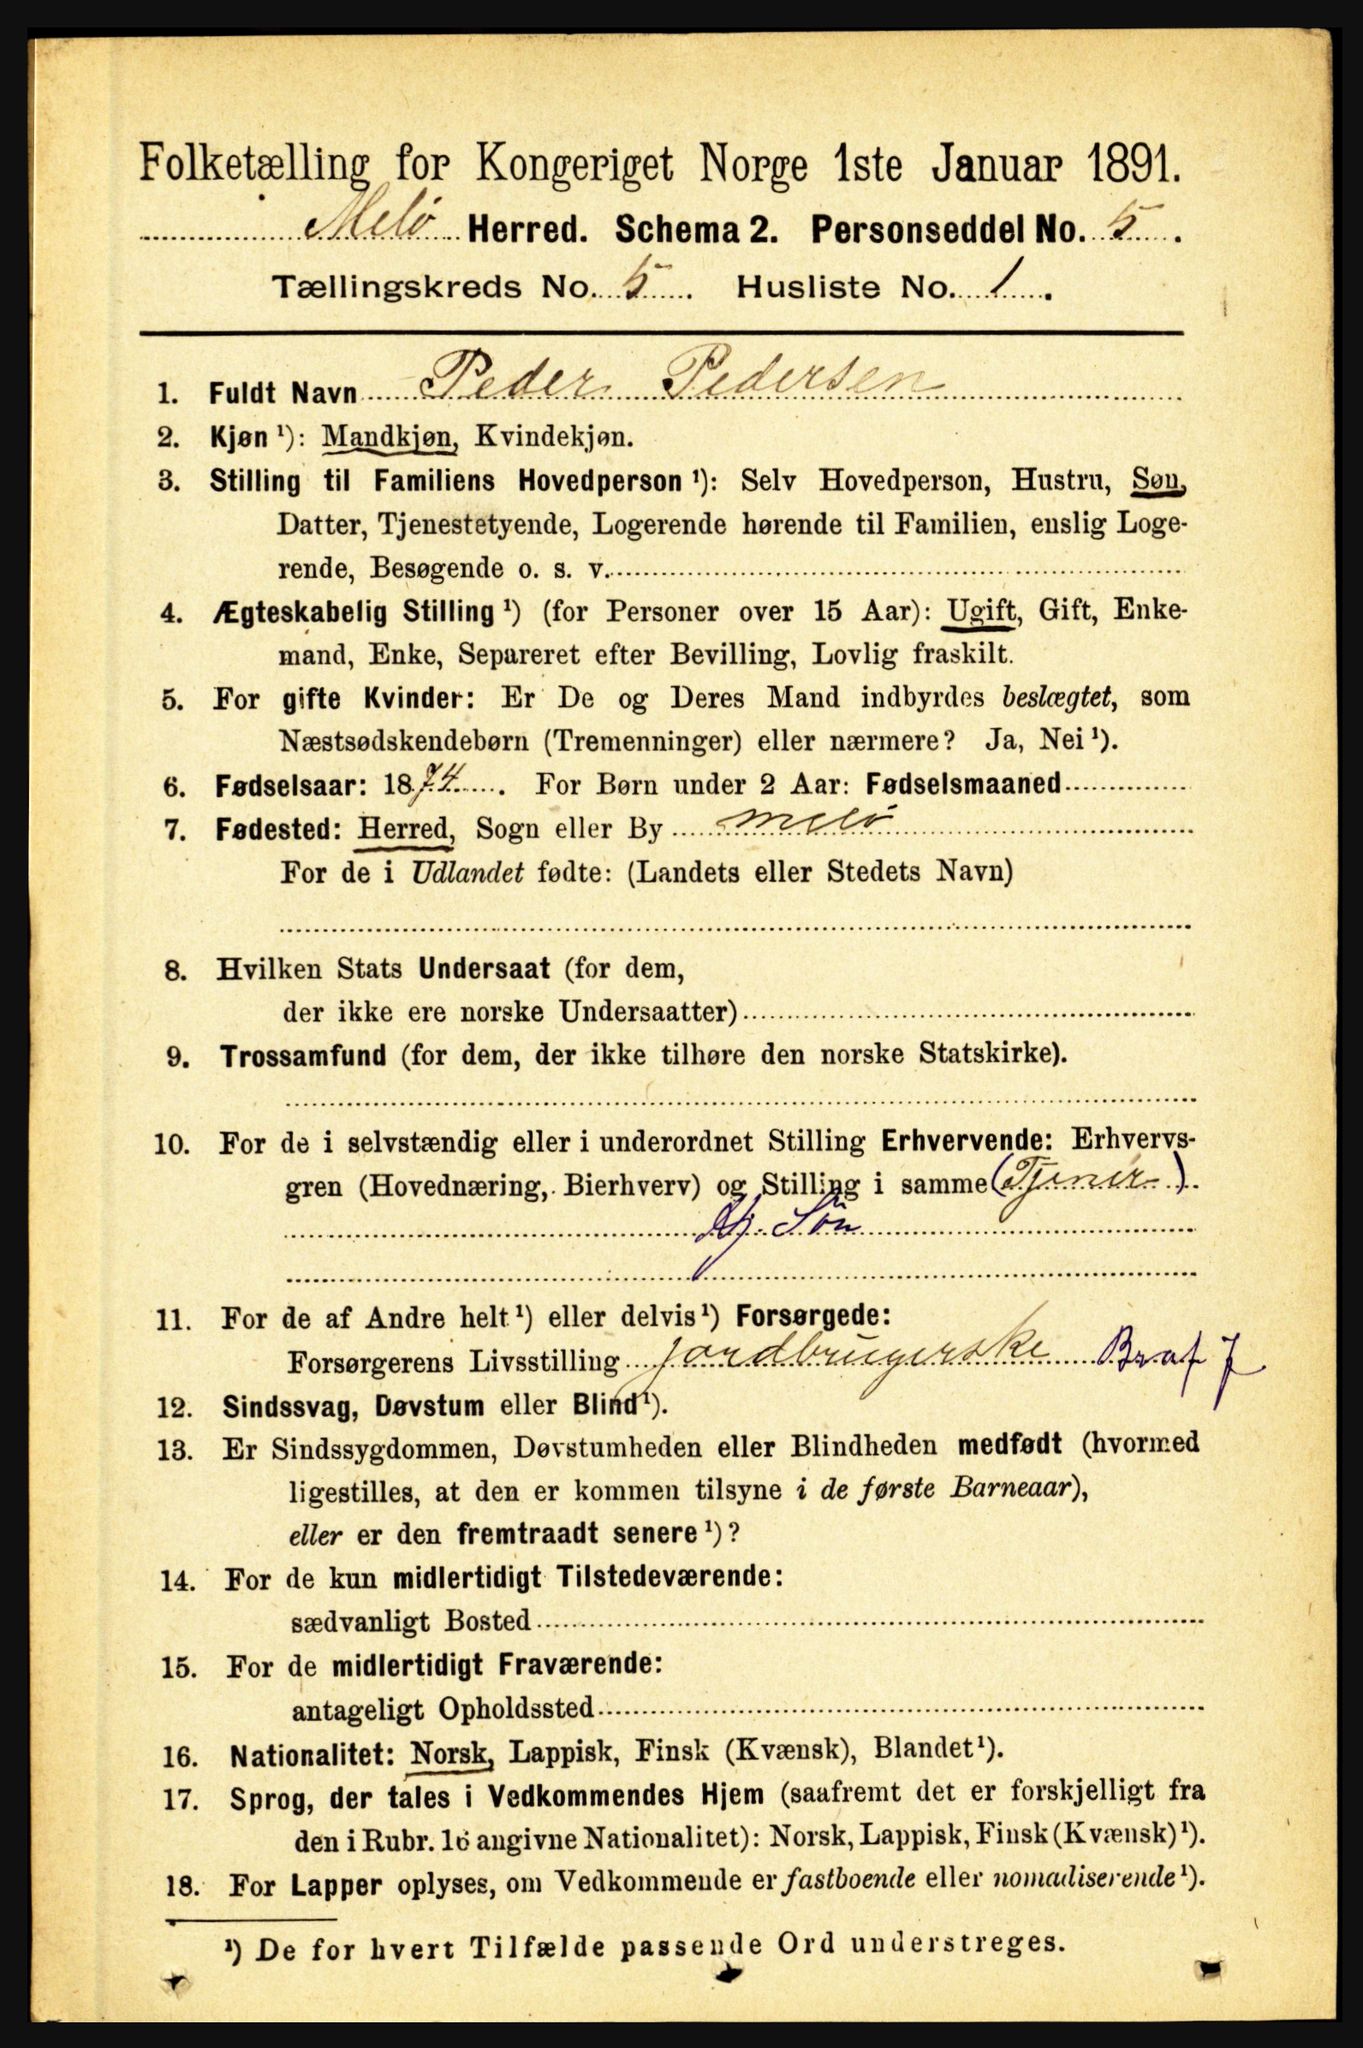 Folketælling for Kongeriget Norge 1ste Januar 1891.
Melö Herred. Schema 2. Personseddel No. 5.
Tællingskreds No. 5. Husliste No. 1.
1. Fuldt Navn Peder Pedersen
2. Kjøn ¹): Mandkjøn, Kvindekjøn.
3. Stilling til Familiens Hovedperson ¹): Selv Hovedperson, Hustru, Søn,
Datter, Tjenestetyende, Logerende hørende til Familien, enslig Loge-
rende, Besøgende o. s. v.
4. Ægteskabelig Stilling ¹) (for Personer over 15 Aar): Ugift, Gift, Enke-
mand, Enke, Separeret efter Bevilling, Lovlig fraskilt.
5. For gifte Kvinder: Er De og Deres Mand indbyrdes beslægtet, som
Næstsødskendebørn (Tremenninger) eller nærmere? Ja, Nei ¹).
6. Fødselsaar: 1874. For Børn under 2 Aar: Fødselsmaaned
7. Fødested: Herred, Sogn eller By Melö
For de i Udlandet fødte: (Landets eller Stedets Navn)
8. Hvilken Stats Undersaat (for dem,
der ikke ere norske Undersaatter)
9. Trossamfund (for dem, der ikke tilhøre den norske Statskirke).
10. For de i selvstændig eller i underordnet Stilling Erhvervende: Erhvervs-
gren (Hovednæring, Bierhverv) og Stilling i samme (Tjener)
Søn
11. For de af Andre helt ¹) eller delvis ¹) Forsørgede:
Forsørgerens Livsstilling jordbrugerske
12. Sindssvag, Døvstum eller Blind ¹).
13. Er Sindssygdommen, Døvstumheden eller Blindheden medfødt (hvormed
ligestilles, at den er kommen tilsyne i de første Barneaar),
eller er den fremtraadt senere ¹)?
14. For de kun midlertidigt Tilstedeværende:
sædvanligt Bosted
15. For de midlertidigt Fraværende:
antageligt Opholdssted
16. Nationalitet: Norsk, Lappisk, Finsk (Kvænsk), Blandet ¹).
17. Sprog, der tales i Vedkommendes Hjem (saafremt det er forskjelligt fra
den i Rubr. 16 angivne Nationalitet): Norsk, Lappisk, Finsk (Kvænsk) ¹).
18. For Lapper oplyses, om Vedkommende er fastboende eller nomadiserende ¹).
¹) De for hvert Tilfælde passende Ord understreges.